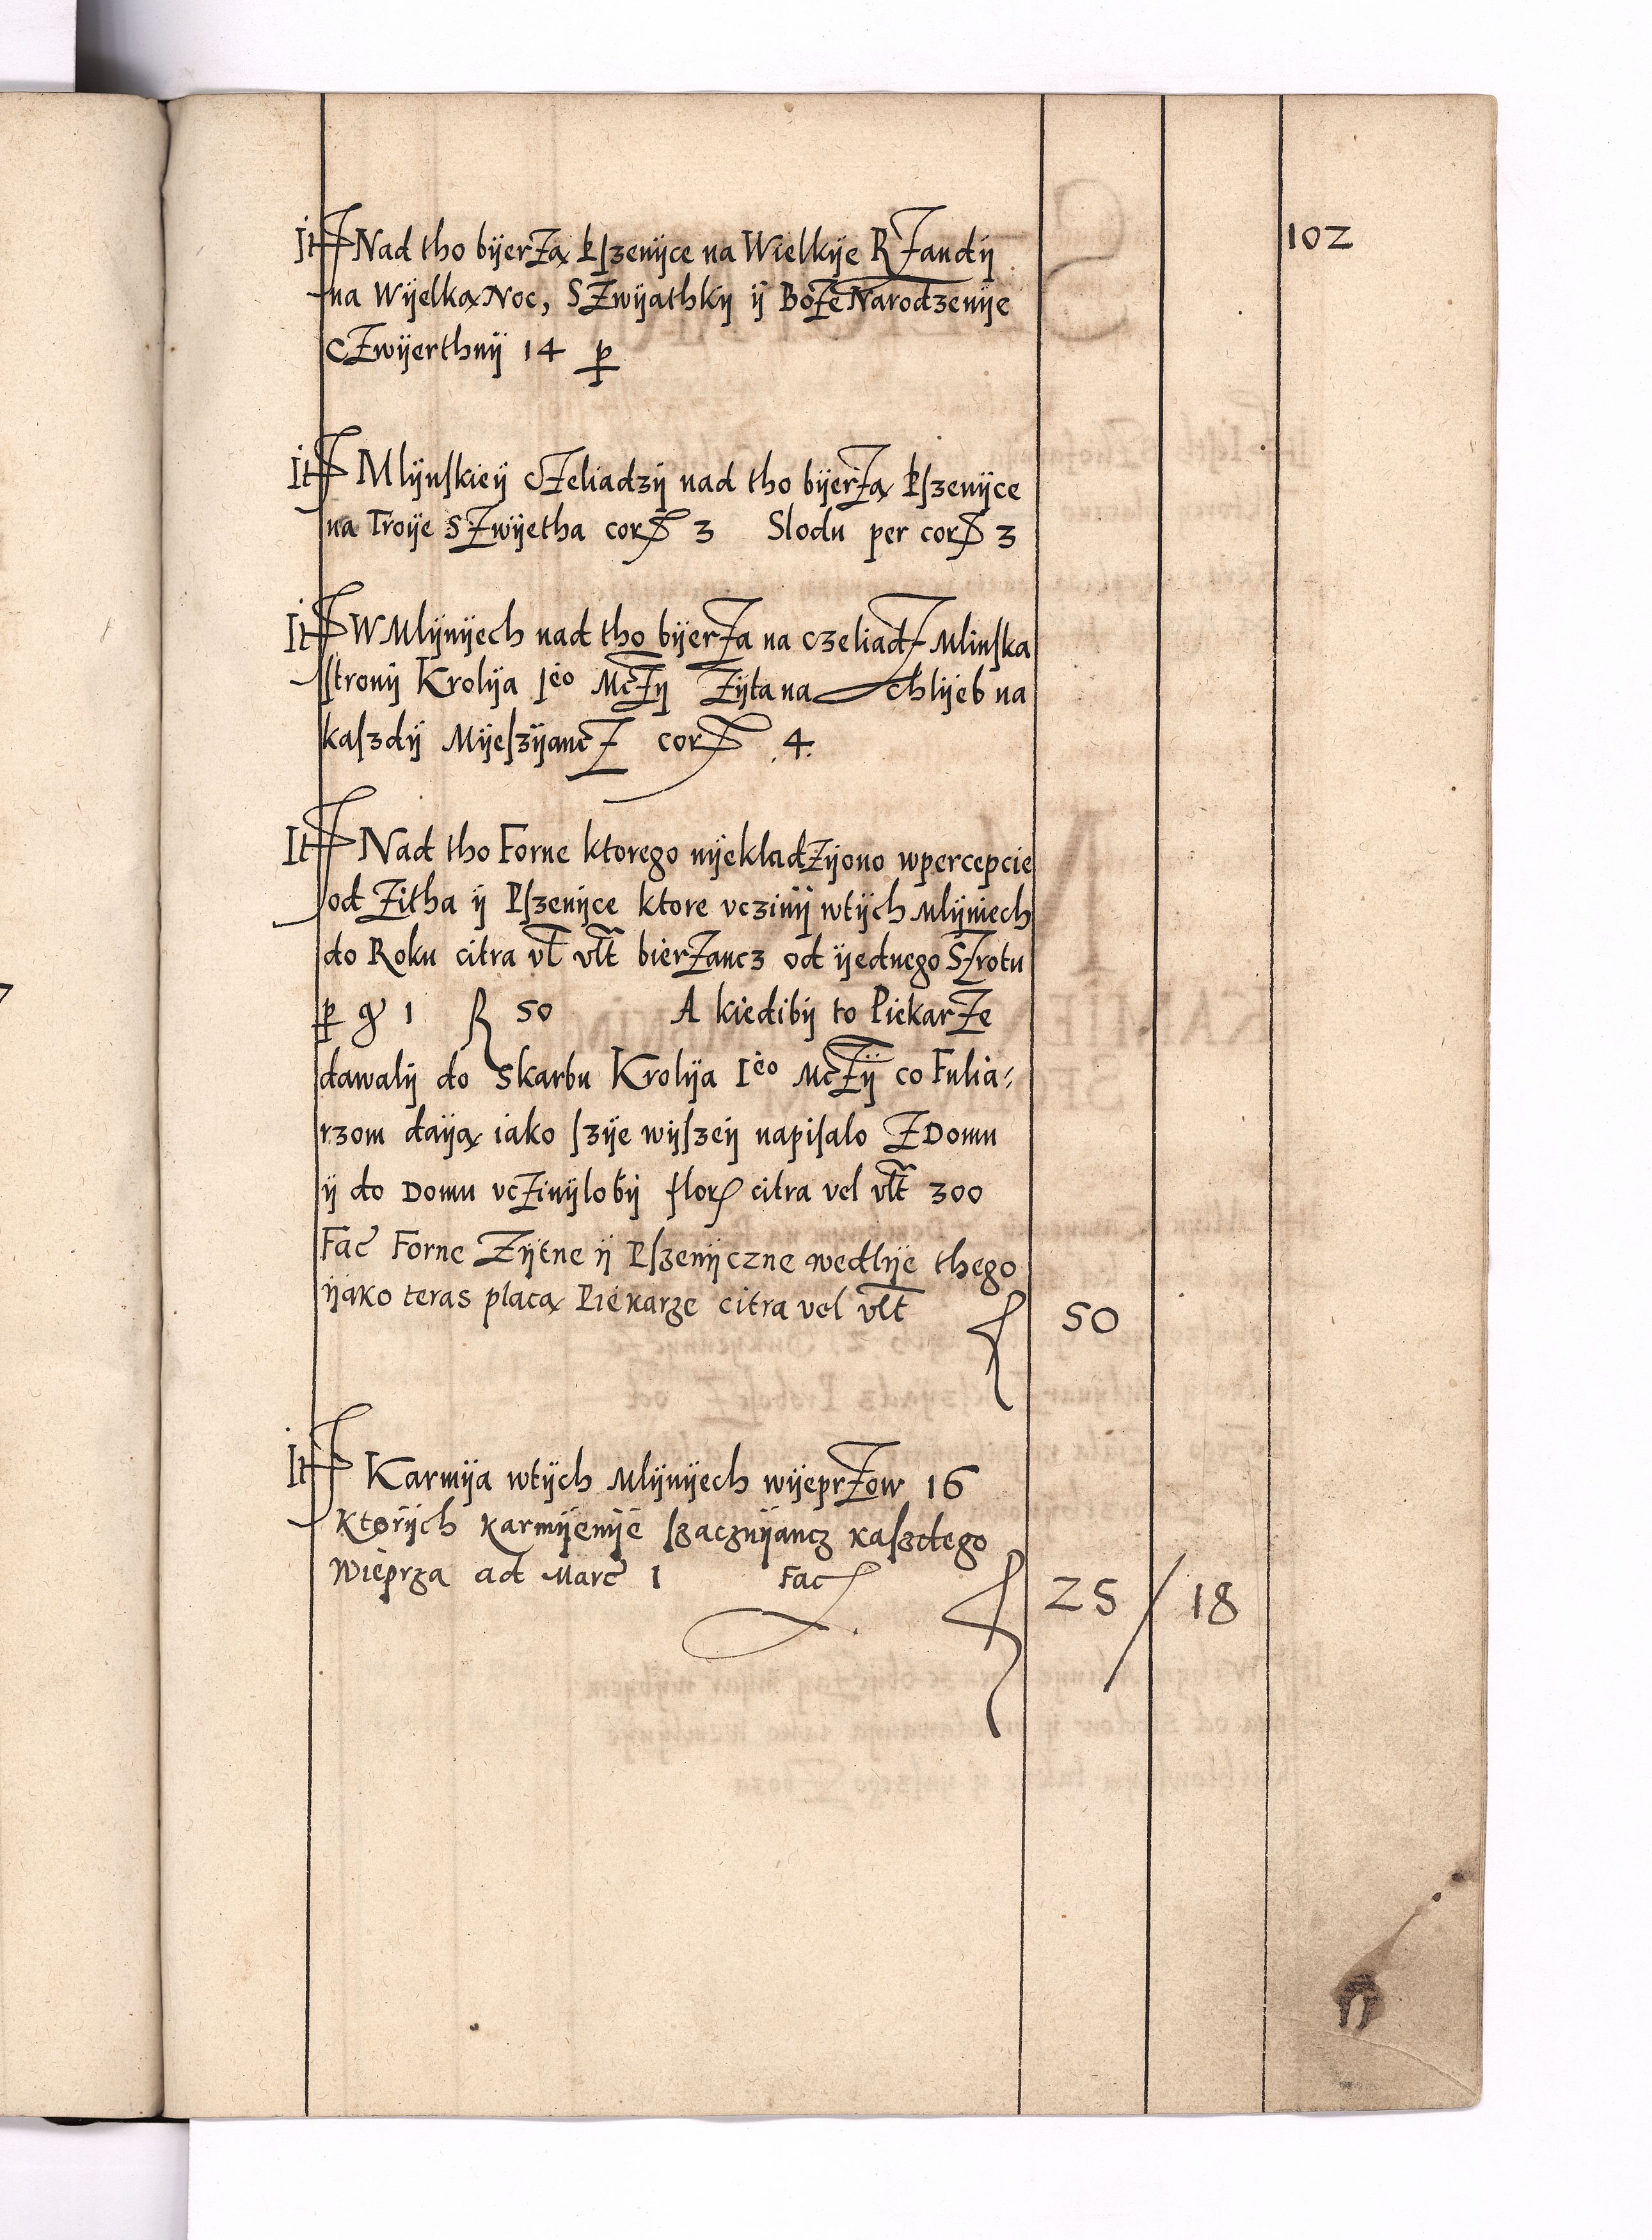 102
It Nad tho bijerZą Pszenijce na Wielkije RZandij
na Wijelką Noc, SZwijathkij ij BoZe Narodzenije
cZwijerthnij 14 p
It Mlijnskieij cZeliadzij nad tho bijerZą Pszenijce
na Troije SZwijetha cor 3 Slodu per cor 3
It W Mlijnijech nad tho bijerZa na czeliadZ Mlinska
stronij Krolija Ieo MčZij Zijta na chlijeb na
kaszdij MijeszijancZ cor .4.
It Nad tho Forne ktorego nijekladZijono wpercepcie
od Zitha ij Pszenijce ktore vczinij wtijch Mlijniech
do Roku citra vl vlt bierZancz od ijednego SZrotu
p g 1 R 50 A kiedibij to PiekarZe
dawalij do Skarbu Krolija Ieo McZij co Fulia-
rzom daiją iako szije wijszeij napisalo Z Domu
ij do Domu vcZinijlobij flor citra vel vlt 300
Fac Forne Zijtne ij Pszenijczne wedlije thego
ijako teras placą Piekarze citra vel vlt 50
It Karmija wtijch Mlijnijech wijeprZow 16
Ktorijch karmijenije szacznijancz kaszdego
Wieprza ad Marc 1 Fac 25 / 18